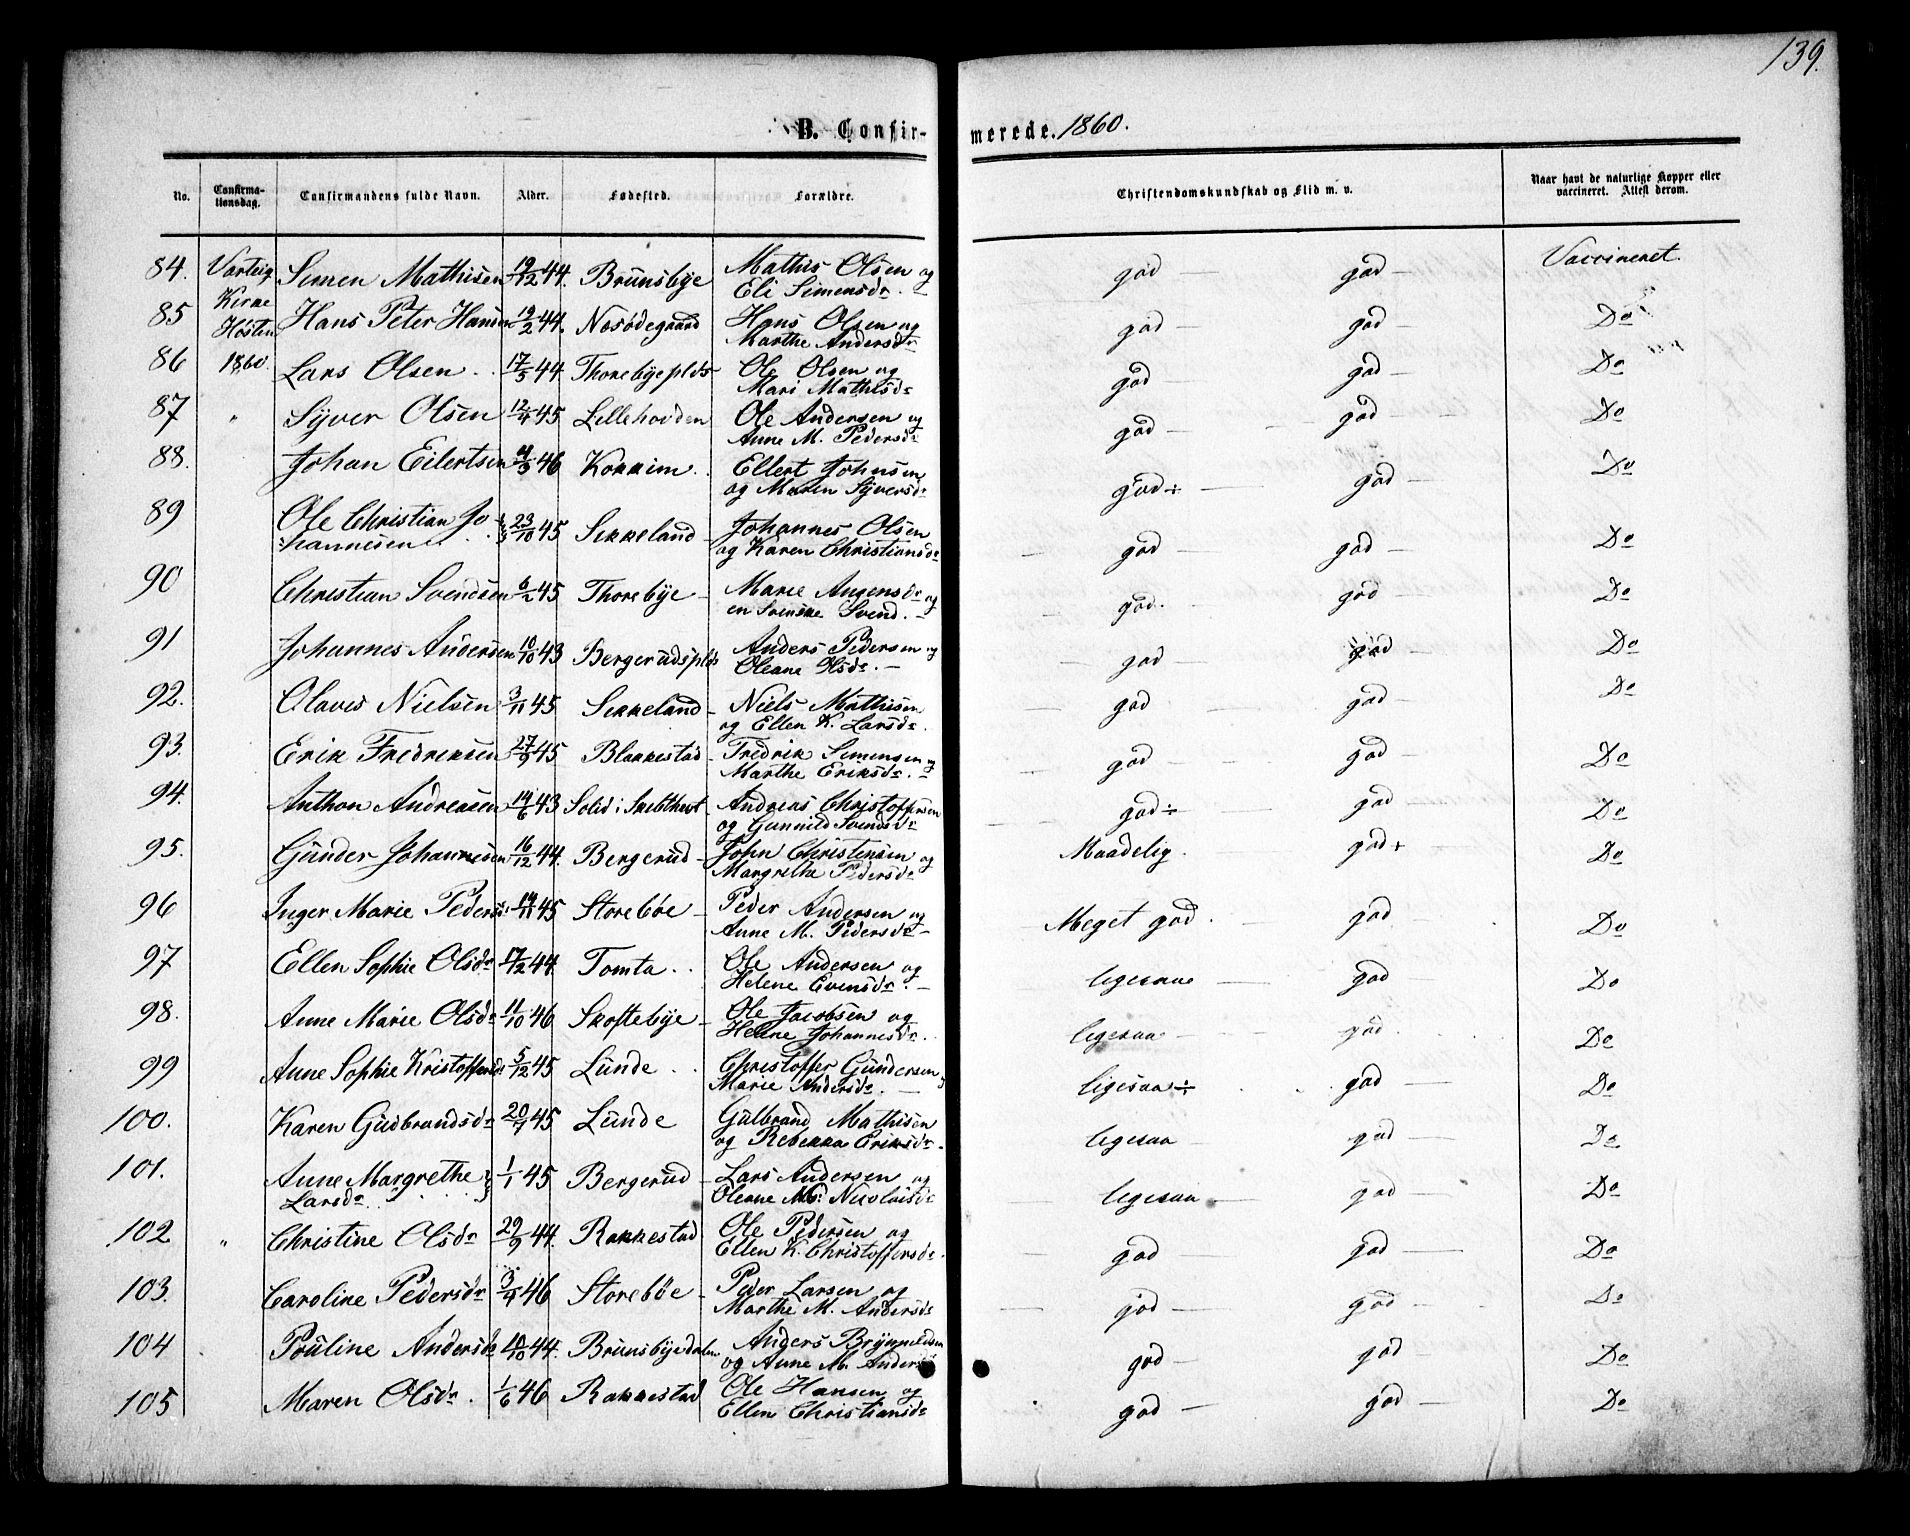 139.
B. Confirmerede. 1860.
No. Confirmationsdag. Confirmandens fulde Navn. Alder. Fødested. Forældre. Christendomskundskab og Flid m. v. Naar havt de naturlige Kopper eller vaccineret. Attest derom.
84. Varteig Kirke Høsten 1860. Simen Mathisen 19/12 44. Brunsbye Mathis Olsen og Eli Simensdr. god god Vaccineret.
85 Hans Peter Hansen 19/2 44. Nesødegaard Hans Olsen og Marthe Andersdr god god Do
86 Lars Olsen 17/5 44 Thorebyeplds Ole Olsen og Mari Mathisdr god god Do
87 " Syver Olsen 12/4 45 Lillehovden Ole Andersen og Anne M. Pedersdr god god Do
88. Johan Eilertsen 46 Kokkim Ellert Johnsen og Maren Syversdr god÷ god Do
89 Ole Christian Johannesen 23/10 45 Sikkeland Johannes Olsen og Karen Christiansdr god god Do
90 Christian Svendsen 6/2 45 Thorebye Marie Angensdr og en Svenske Svend. god. god Do
91 Johannes Andersen 10/10 43 Bergerudsplds Anders Pedersen og Oleane Olsdr. god god Do
92. Olaves Nielsen 3/11 45 Sikkeland Niels Mathisen og Ellen K. Larsdr. god god Do
93. Erik Fredriksen 27/9 45 Blakkestad Fredrik Simensen og Marthe Eriksdr. god god Do
94. Anthon Andreasen 14/6 43 Solid i Skibthvet Andreas Christoffersen og Gunnild Svendsdr god÷ god Do
95. Gunder Johannesen 16/12 44. Bergerud John Christensen og Margrethe Pedersdr Maadelig. god+ Do
96 Inger Marie Pedersdr 19/11 45 Storebøe Peder Andersen og Anne M. Pedersdr Meget god. god Do
97 Ellen Sophie Olsdr 17/12 44. Tomta Ole Andersen og Helene Evensdr. ligesaa god Do
98. Anne Marie Olsdr 11/10 46 Skoftebye Ole Jacobsen og Helene Johannesdr. ligesaa god Do
99 Anne Sophie Kristoffersdr 5/12 45 Lunde Christoffer Gundersen og Marie Andersdr. ligesaa÷ god Do
100. Karen Gudbrandsdr 20/7 45 Lunde Gulbrand Mathisen og Rebekka Eriksdr. ligesaa god Do
101. Anne Margrethe Larsdr 1/1 45 Bergerud Lars Andersen og Oleane Nicolaisdr ligesaa god Do
102 " Christine Olsdr 29/9 44. Rakkestad Ole Pedersen og Ellen K. Christoffersdr. god god Do
103. Caroline Pedersdr 3/4 46 Storebøe Peder Larsen og Marthe M. Andersdr god god Do
104 Pouline Andersdr 10/10 44. Brunsbyedalen Anders Brynnildsen og Anne M. Andersdr god god Do
105 Maren Olsdr. 1/6 46 Rakkestad Ole Hansen og Ellen Christiansdr god god Do